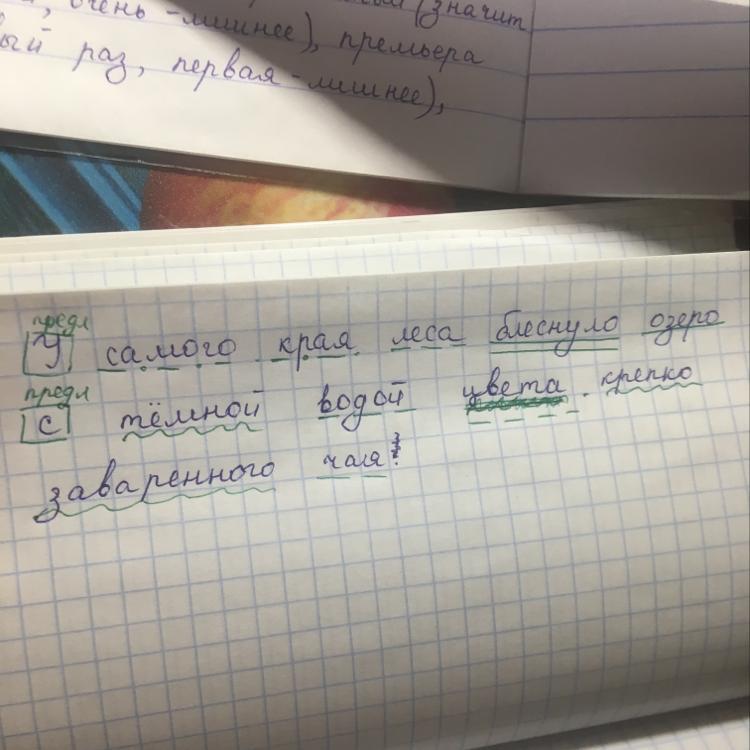 очень - лишнее), премьера
раз, первая - лишнее),
предл
У самого края леса блеснуло озеро
предл
с тёмной водой цвета крепко
заваренного чая.